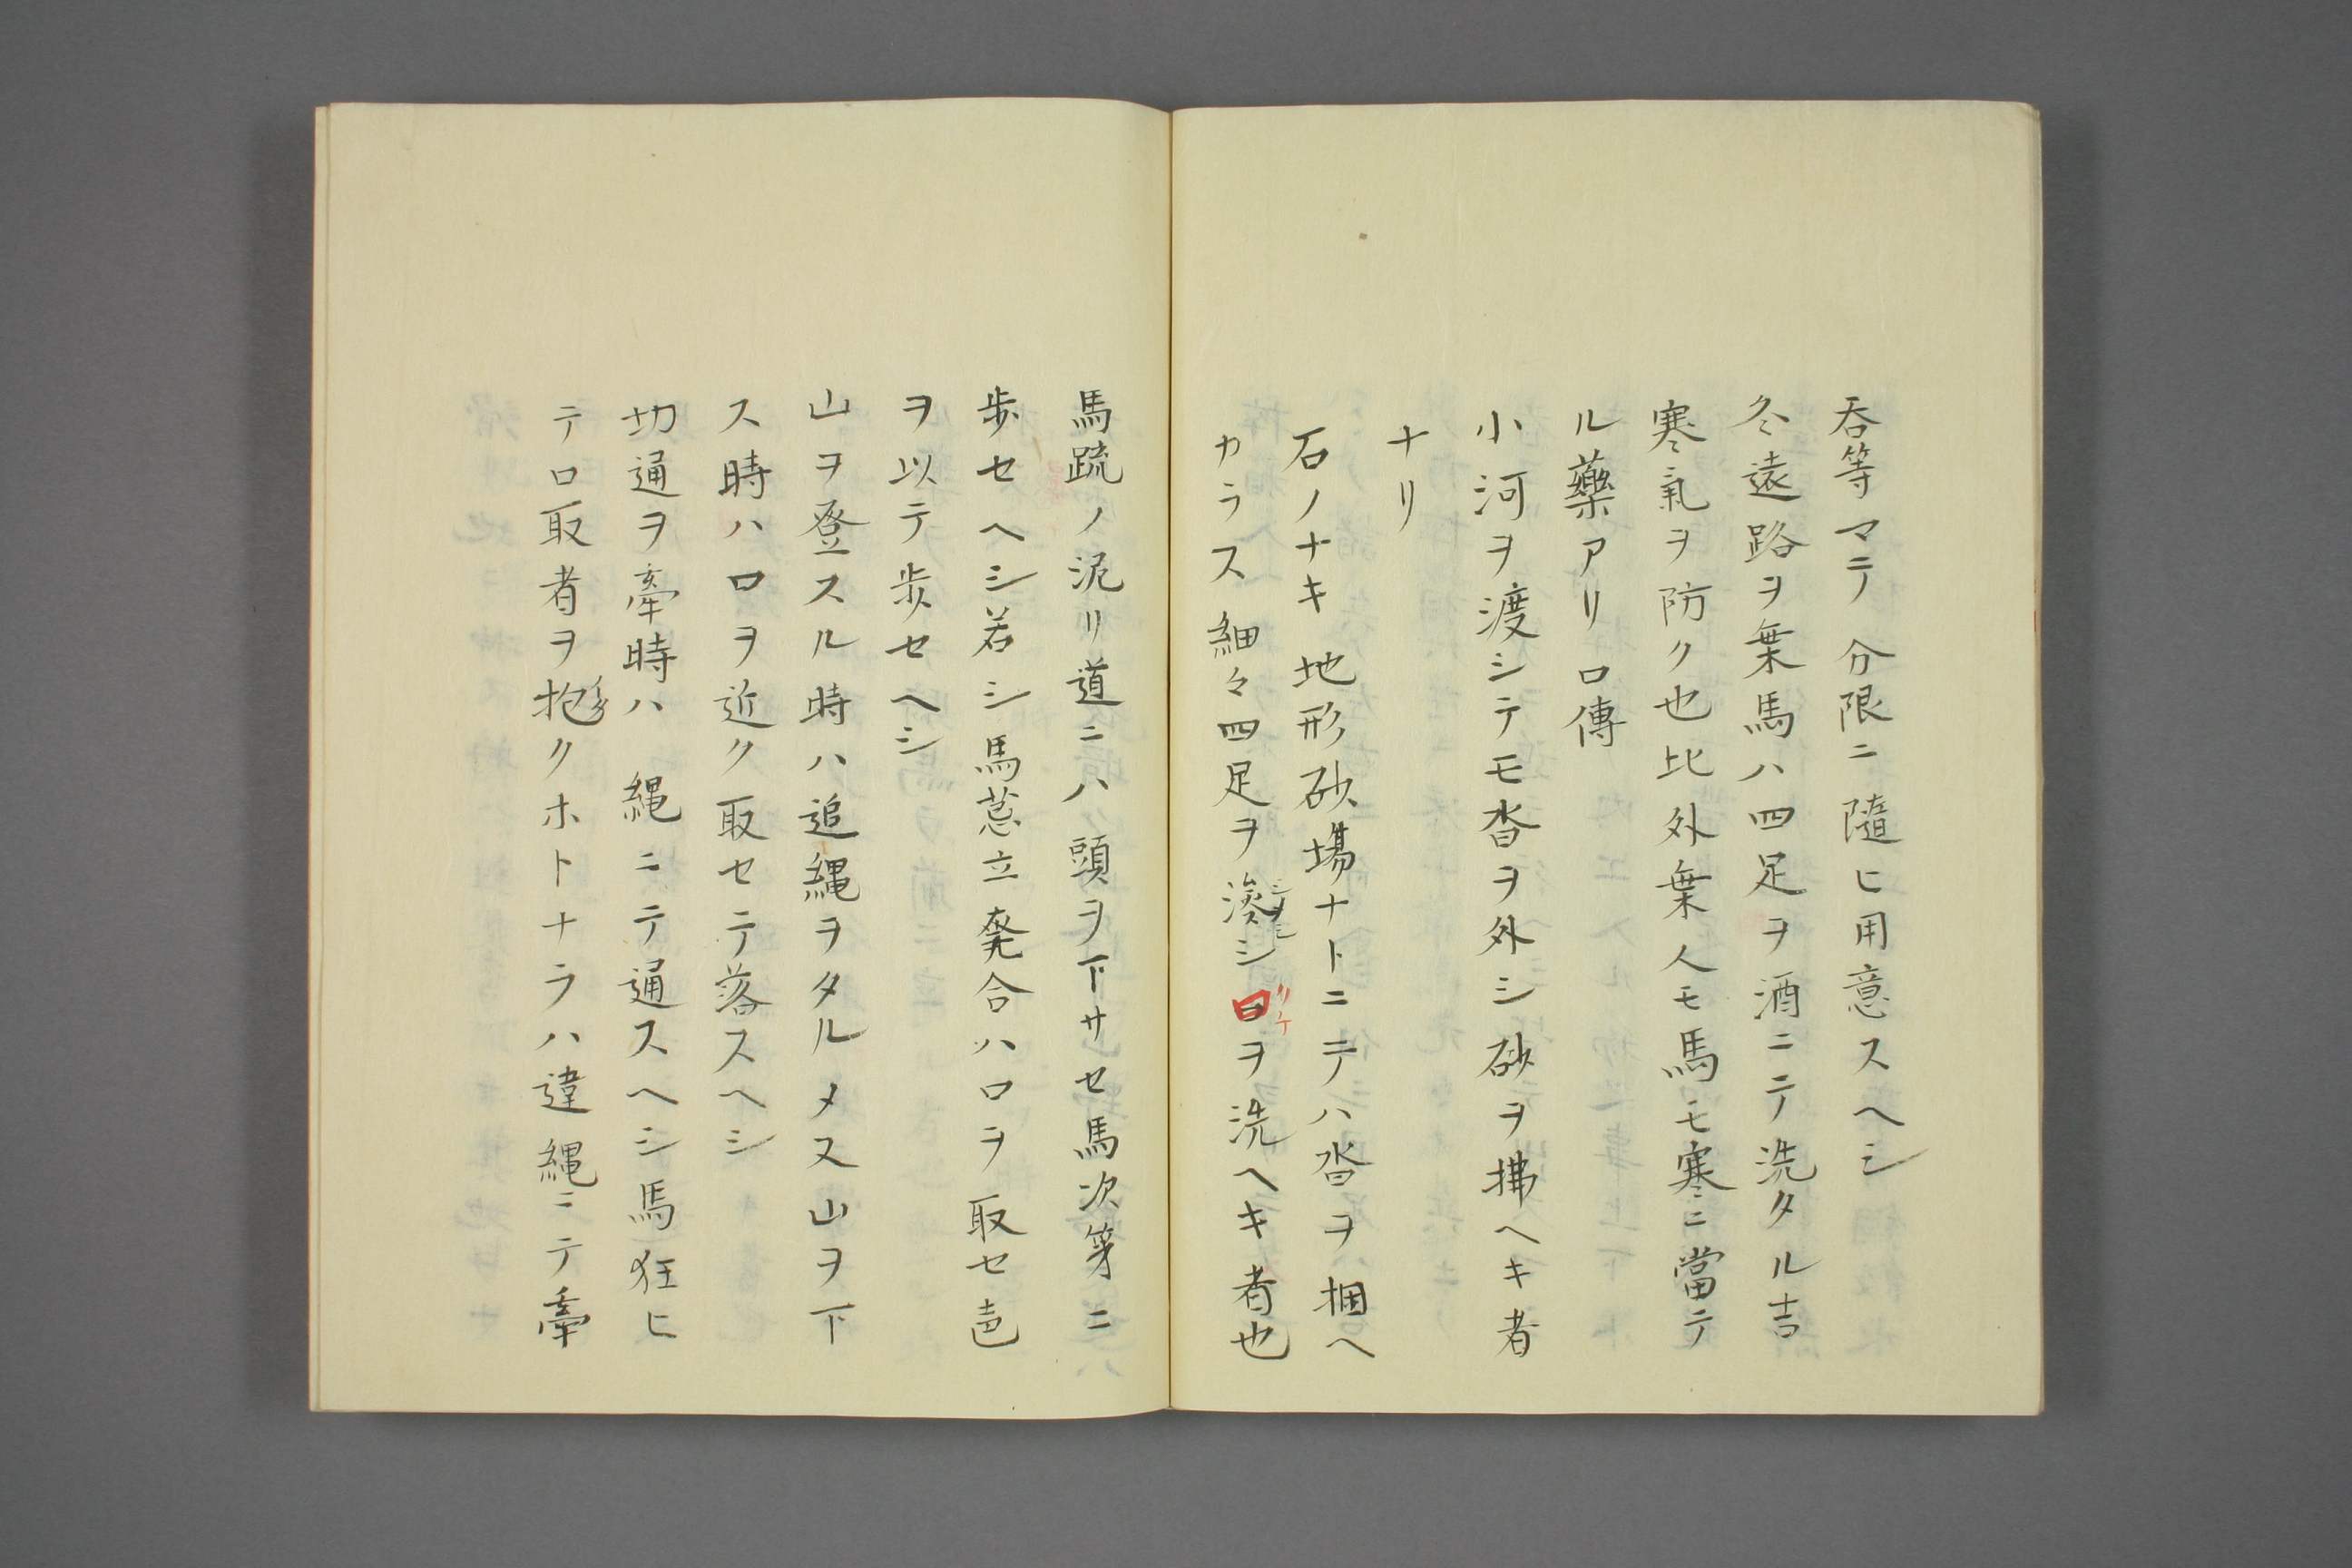 吞等マテ分限ニ隨ヒ用意スヘシ
冬遠路ヲ棄馬ハ四足ヲ酒ニテ洗タル吉
寒氣ヲ防ク也比外棄人モ馬モ寒ニ當テ
ル藥アリ口傳
小河ヲ渡シテモ沓ヲ外シ砂ヲ拂ヘキ者
ナリ
石ノナキ地形砂場ナトニテハ沓ヲ掴ヘ
カラス細々四足ヲシ口ヲ洗ヘキ者也
馬疏ノ泥リ道ニハ頭ヲ下サセ馬次第ニ
歩セヘシ若シ馬立発合ハ口ヲ取セ
ヲ以テ歩セヘシ
山ヲ登スル時ハ追縄ヲタルメ又山ヲ下
ス時ハ口ヲ近ク取セテ落スヘシ
切通ヲ牽時ハ縄ニテ通スヘシ馬狂ヒ
テ口取者ヲ抱クホトナラハ違縄ニテ牽